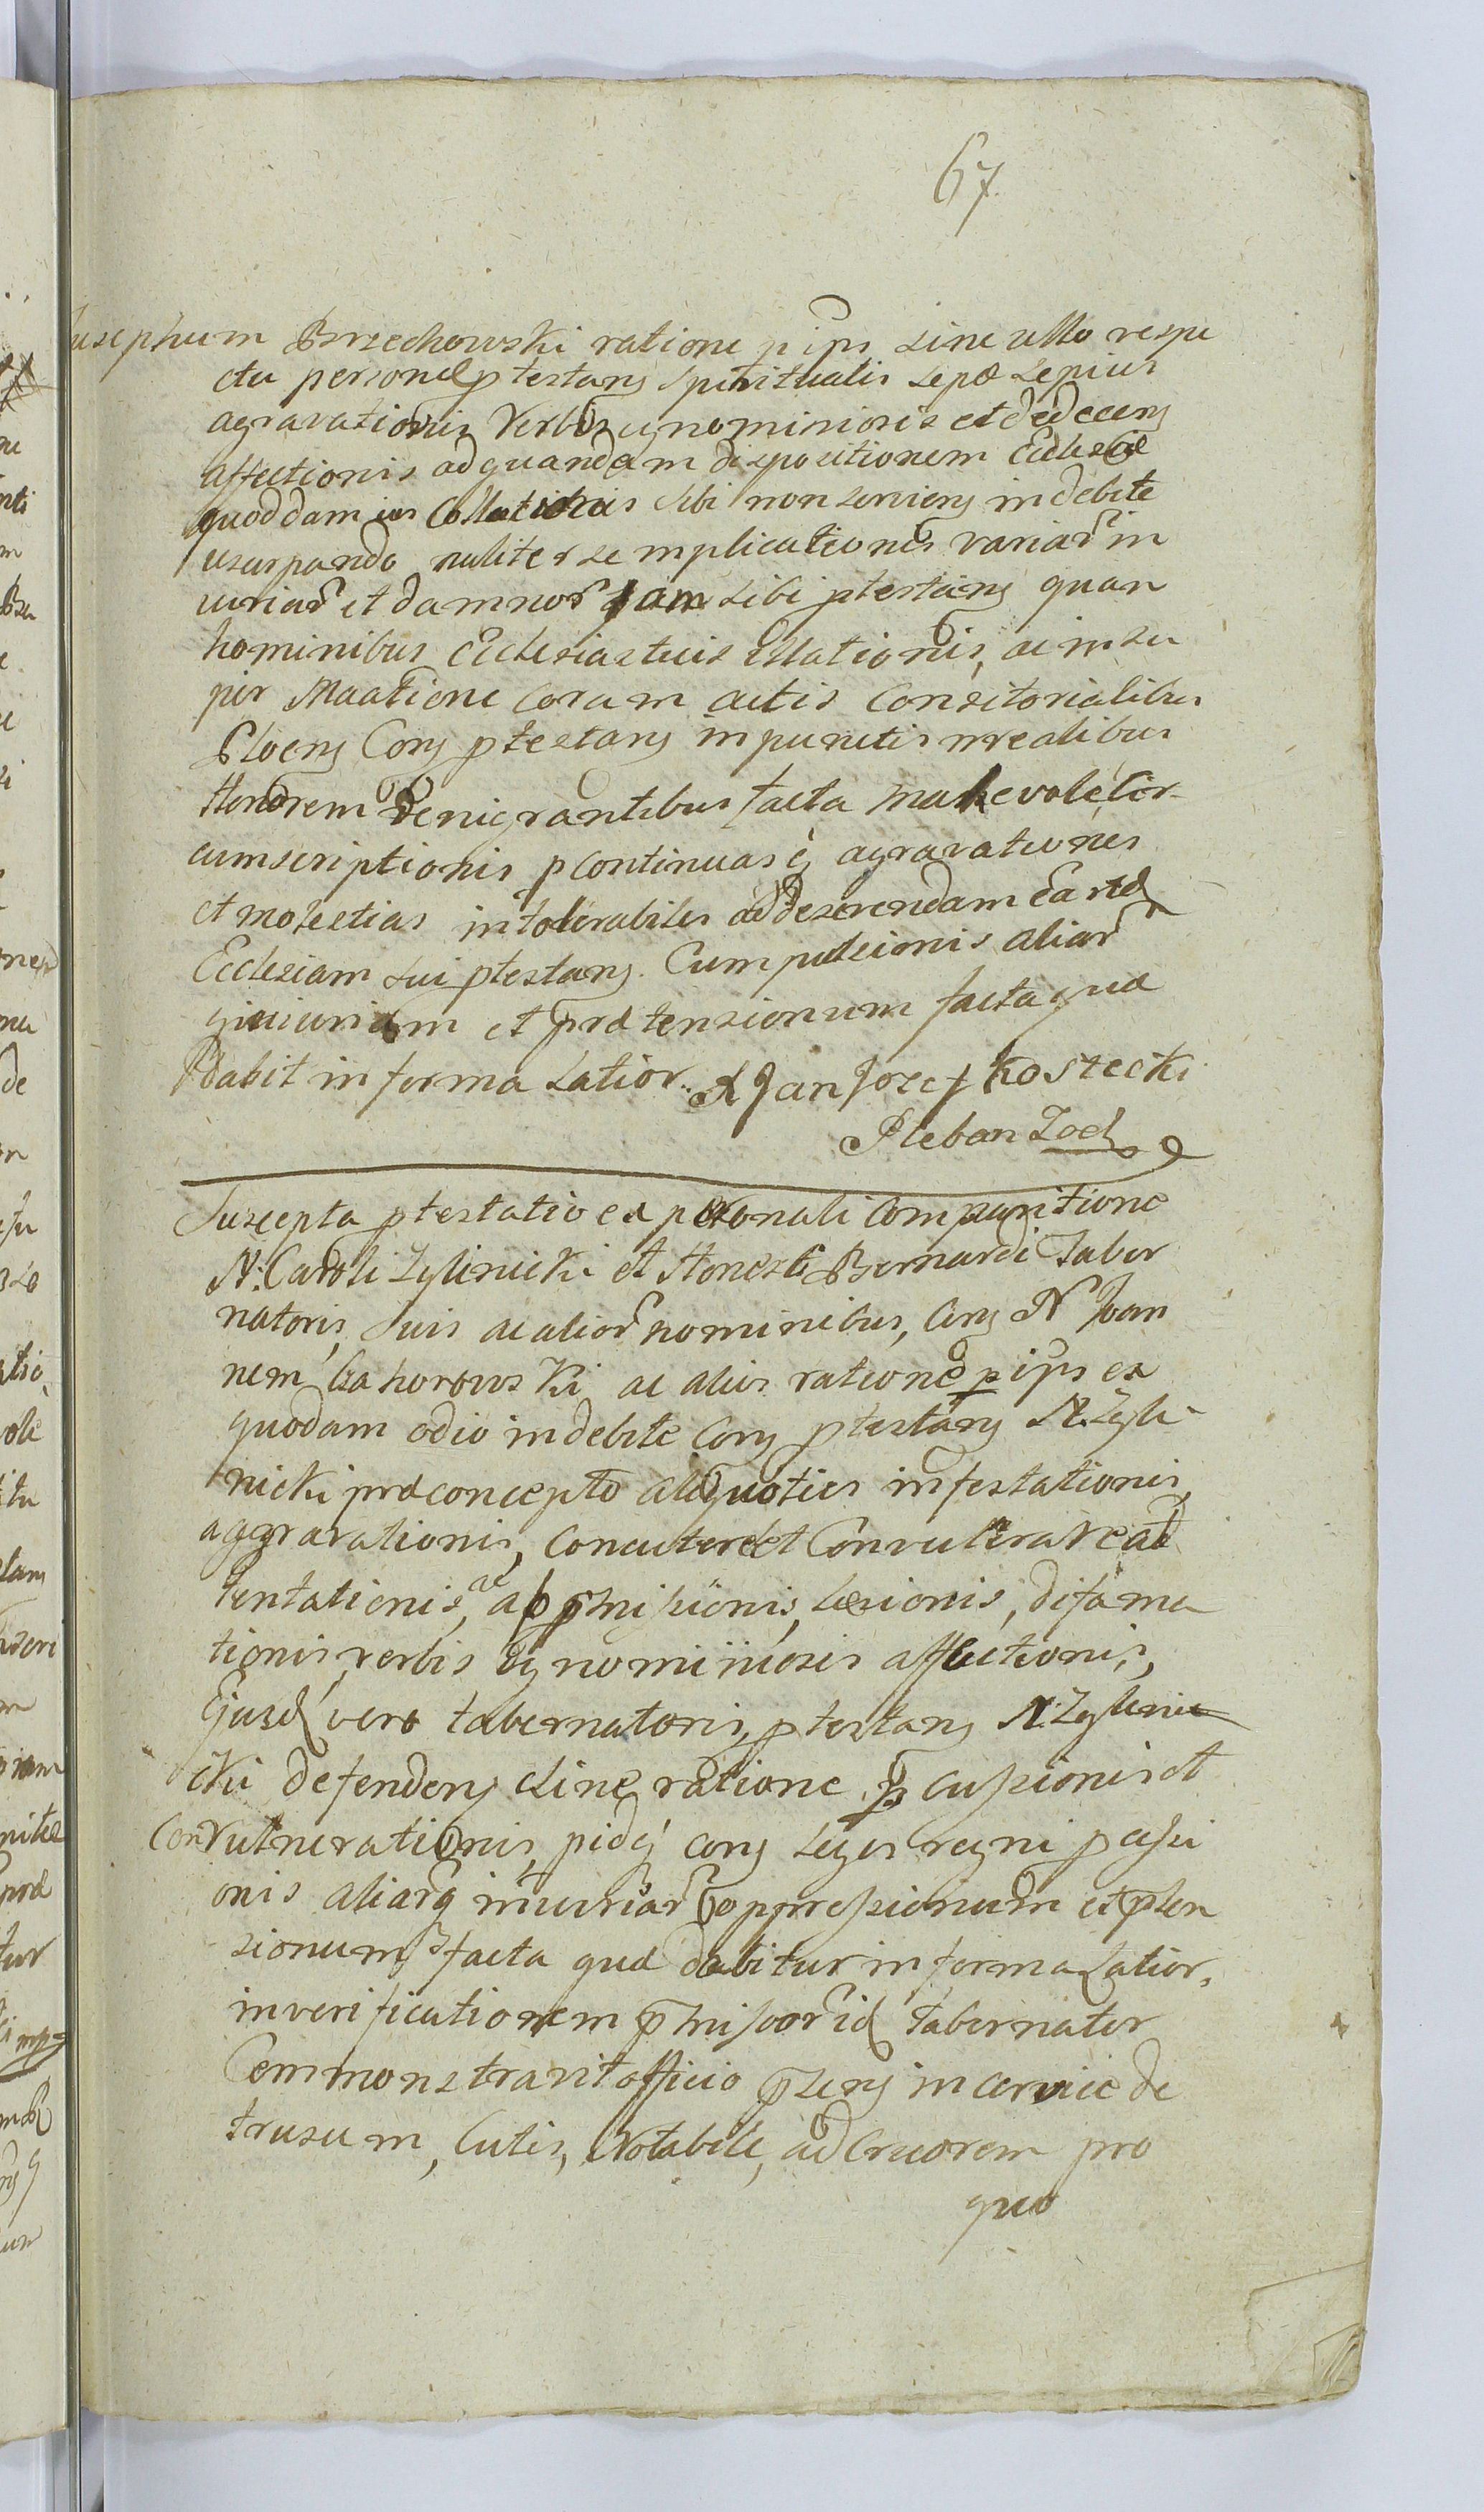 67
usephum Brzechowski ratione p ips sine ullo respe
ctu personæ ptestans spiritualis sepæ sepius
agravationis Verbis ignominiosis et dedecens
affectionis ad quandam dispositionem Ecclesiæ
quoddam ius Collationis sibi non serviens indebite
usurpando nuliter se mplicationis variar in
iuriar et damnor qam sibi ptestans quan
hominibus Ecclesiasticis illationis, ac insu
per Maatione coram actis Consitorialibus
Plocens Cons ptestans in punctis nrealibus
Honorem denigrantibus facta malevole Cir-
cumscriptionis p continuas q agravationes
et molestias intolerabiles ad deserendam eand
Ecclesiam sui ptestans. Cumpulsionis aliar
q iniuriarum et prætensionum facta quæ
dabit in forma Latior. X Jan Jozef Kostecki
Pleban Zod
Suscepta ptestatio ex psonali Comparitione
N: Caroli Zylinicki et Honesti Bernardi Taber
natoris, suis ac alior nominibus, Cons N Joan
nem Gahorowski ac alios ratione p ips ex
quodam odio indebite Cons ptestans N. Zyli-
nicki præconcepto aliquoties infestationis,
aggravationis, concutere et Convulnerare ad
tentationis, ac pmissionis, læsionis, difama
tionis, verbis ignominiosis affectionis,
Ejusd vero tabernatoris, ptestans N. Zylinic
cki defendens sine ratione pcussionis et
Convulnerationis, pidq cons Leges regni pcessi
onis aliarq iniuriar oppressionum et pten
sionum facta quæ dabitur in forma Latior,
in verificationem pmissor id Tabernator
Commonstravit officio psens in cervice de
trusum, Cutis, Notabile, ad Cruorem pro
quo